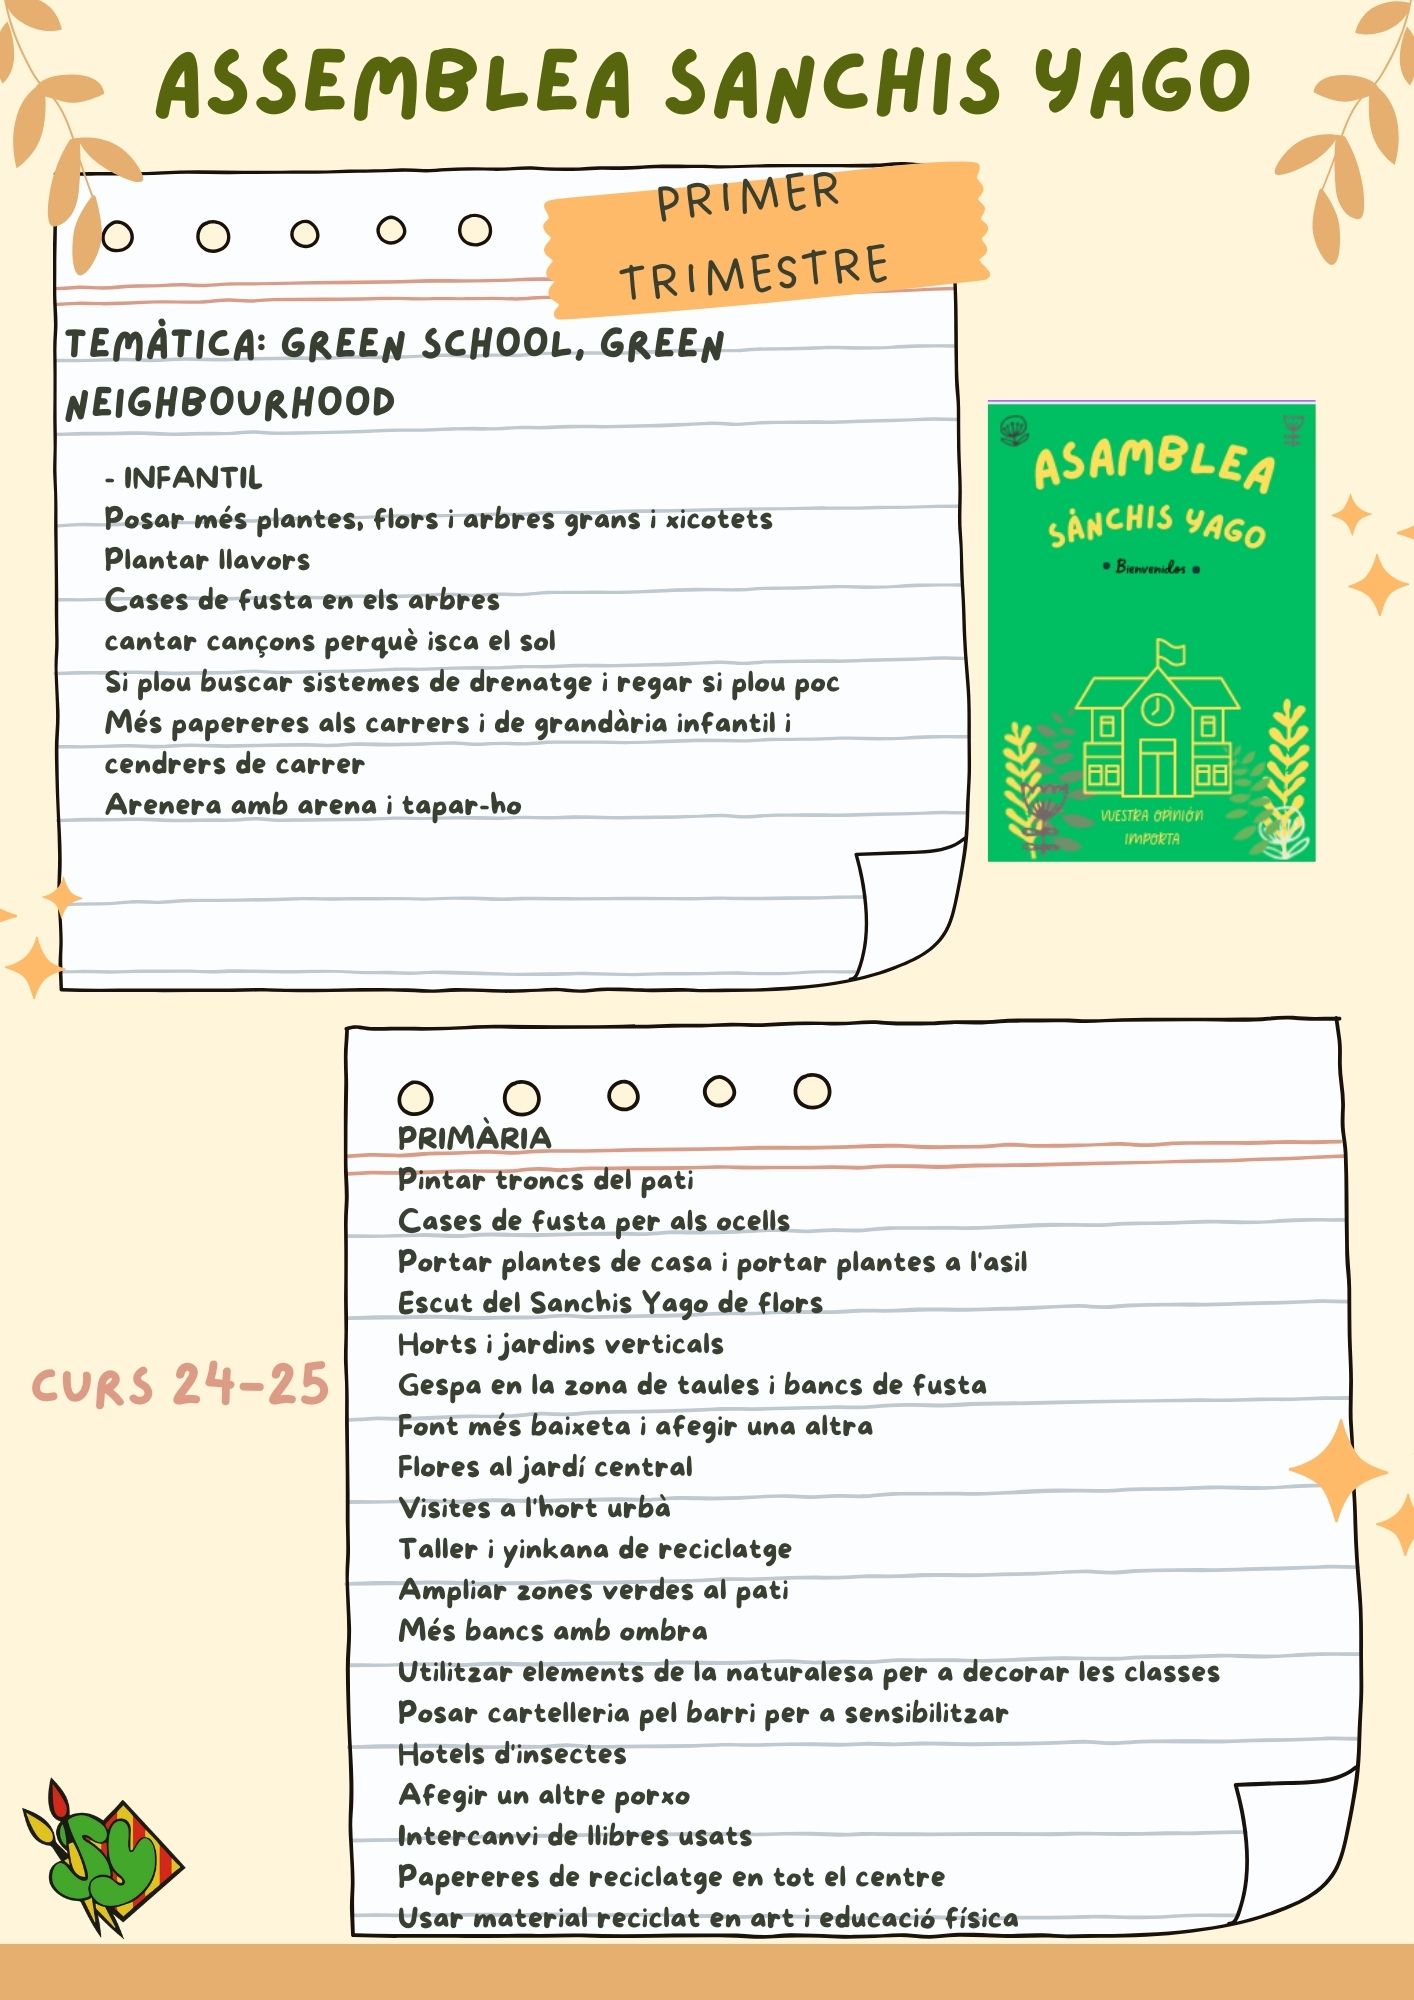 ASSEMBLEA SANCHIS YAGO
PRIMER
TRIMESTRE
TEMÀTICA: GREEN SCHOOL, GREEN
NEIGHBOURHOOD
- INFANTIL
Posar més plantes, flors i arbres grans i xicotets
Plantar llavors
Cases de fusta en els arbres
cantar cançons perquè isca el sol
Si plou buscar sistemes de drenatge i regar si plou poc
Més papereres als carrers i de grandària infantil i
cendrers de carrer
Arenera amb arena i tapar-ho
ASAMBLEA
SÀNCHIS YAGO
• Bienvenidos •
VUESTRA OPINIÓN
IMPORTA
PRIMÀRIA
Pintar troncs del pati
Cases de fusta per als ocells
Portar plantes de casa i portar plantes a l'asil
Escut del Sanchis Yago de flors
Horts i jardins verticals
Gespa en la zona de taules i bancs de fusta
Font més baixeta i afegir una altra
Flores al jardí central
Visites a l'hort urbà
Taller i yinkana de reciclatge
Ampliar zones verdes al pati
Més bancs amb ombra
Utilitzar elements de la naturalesa per a decorar les classes
Posar cartelleria pel barri per a sensibilitzar
Hotels d'insectes
Afegir un altre porxo
Intercanvi de llibres usats
Papereres de reciclatge en tot el centre
Usar material reciclat en art i educació física
CURS 24-25
SY